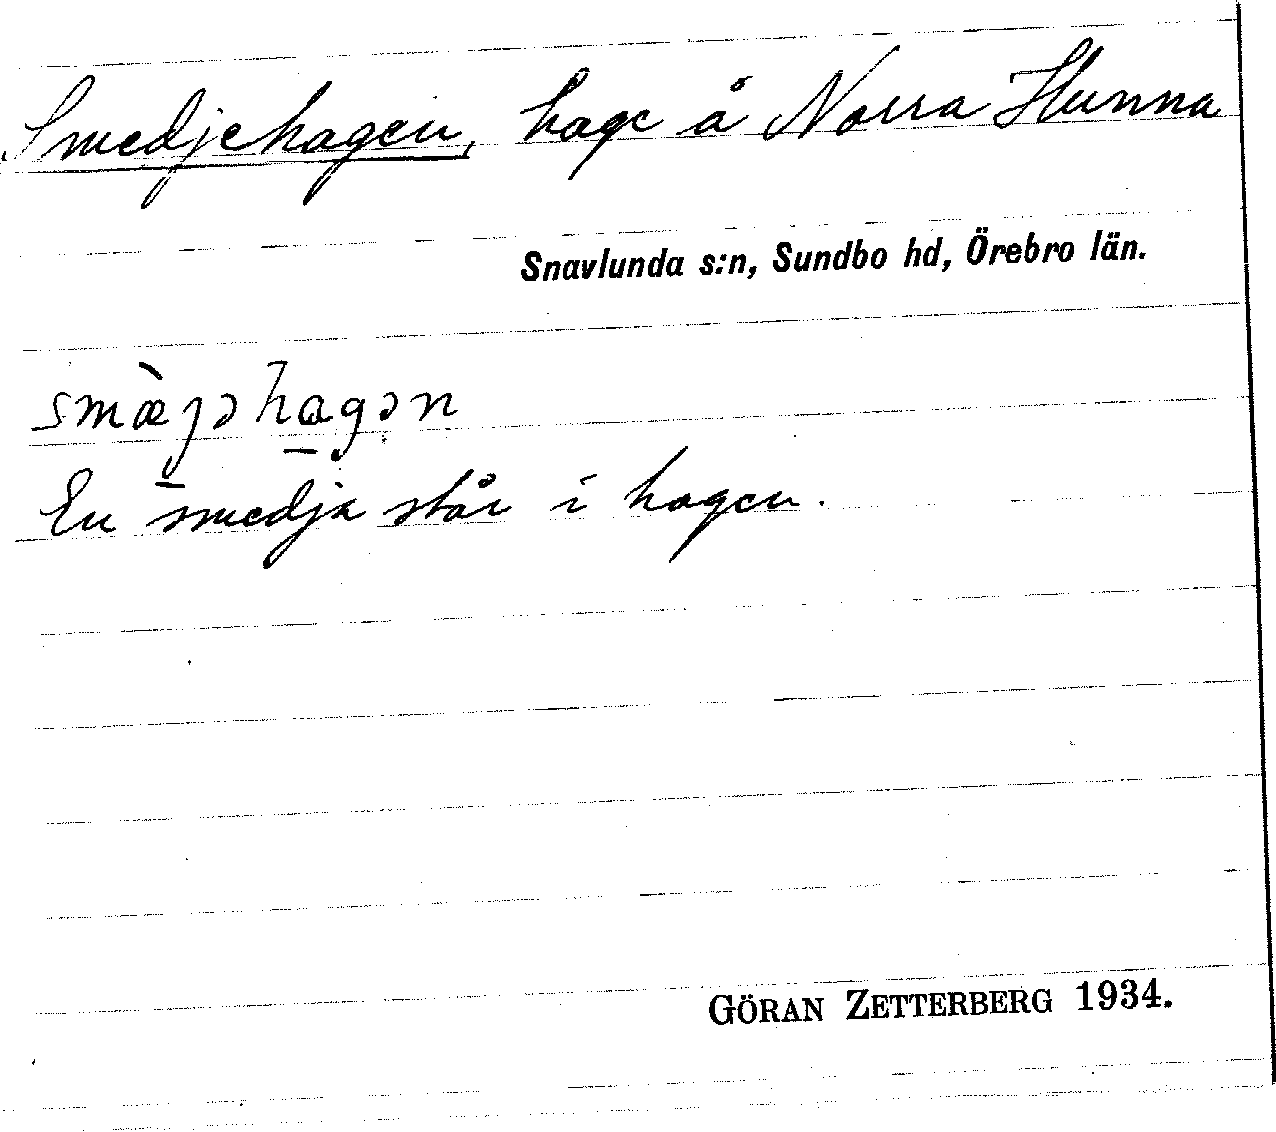 Smedjehagen, hage å Norra Hunna
Snavlunda s:n, Sundbo hd, Örebro län.
smæ̀ȷəhagən
En smedja står i hagen.
GÖRAN ZETTERBERG 1934.